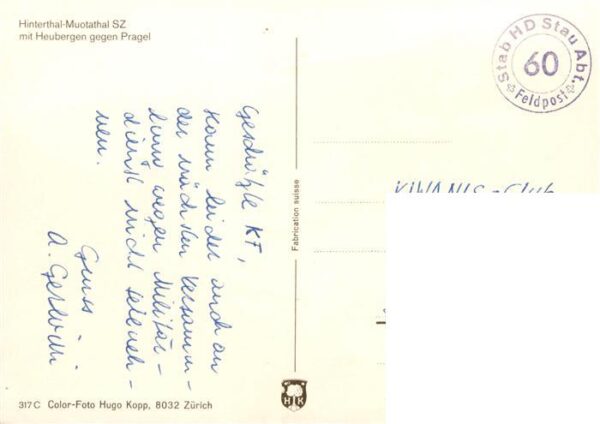 Hinterthal-Muotathal SZ
mit Heubergen gegen Pragel
Stab HD Stau Abt.
60
Feldpost
Geschätzte KF,
kann leider auch an
der nächsten Versamm-
lung wegen Militär-
dienst nicht teilneh-
men.
Gruss
A.
Fabrication suisse
KIWANIS-Club
H K
317 C Color-Foto Hugo Kopp, 8032 Zürich